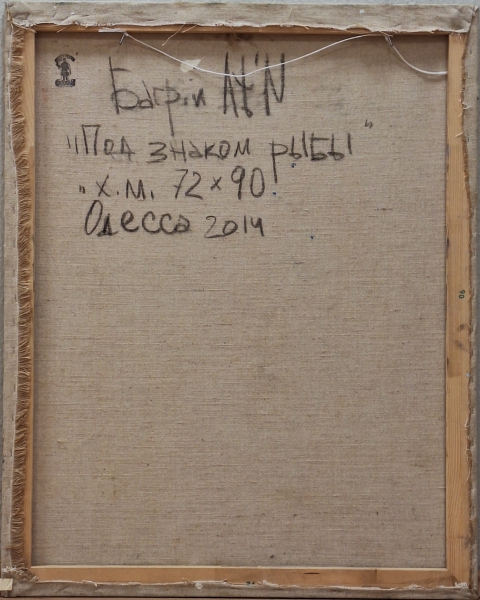 Багрій
"Под знаком рыбы"
х.м. 72×90.
Одесса 2014
90